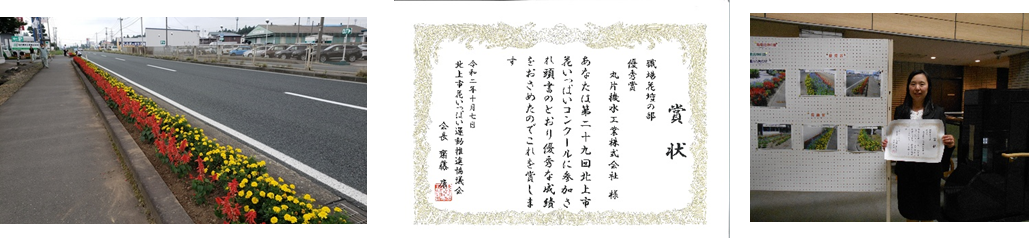 賞状
職場花壇の部
優秀賞
丸片撥水工業株式会社 様
あなたは第二十九回北上市
花いっぱいコンクールに参加さ
れ頭書のとおり優秀な成績
をおさめたのでこれを賞しま
す
令和二年十月七日
北上市花いっぱい運動推進協議会
会長 齋藤